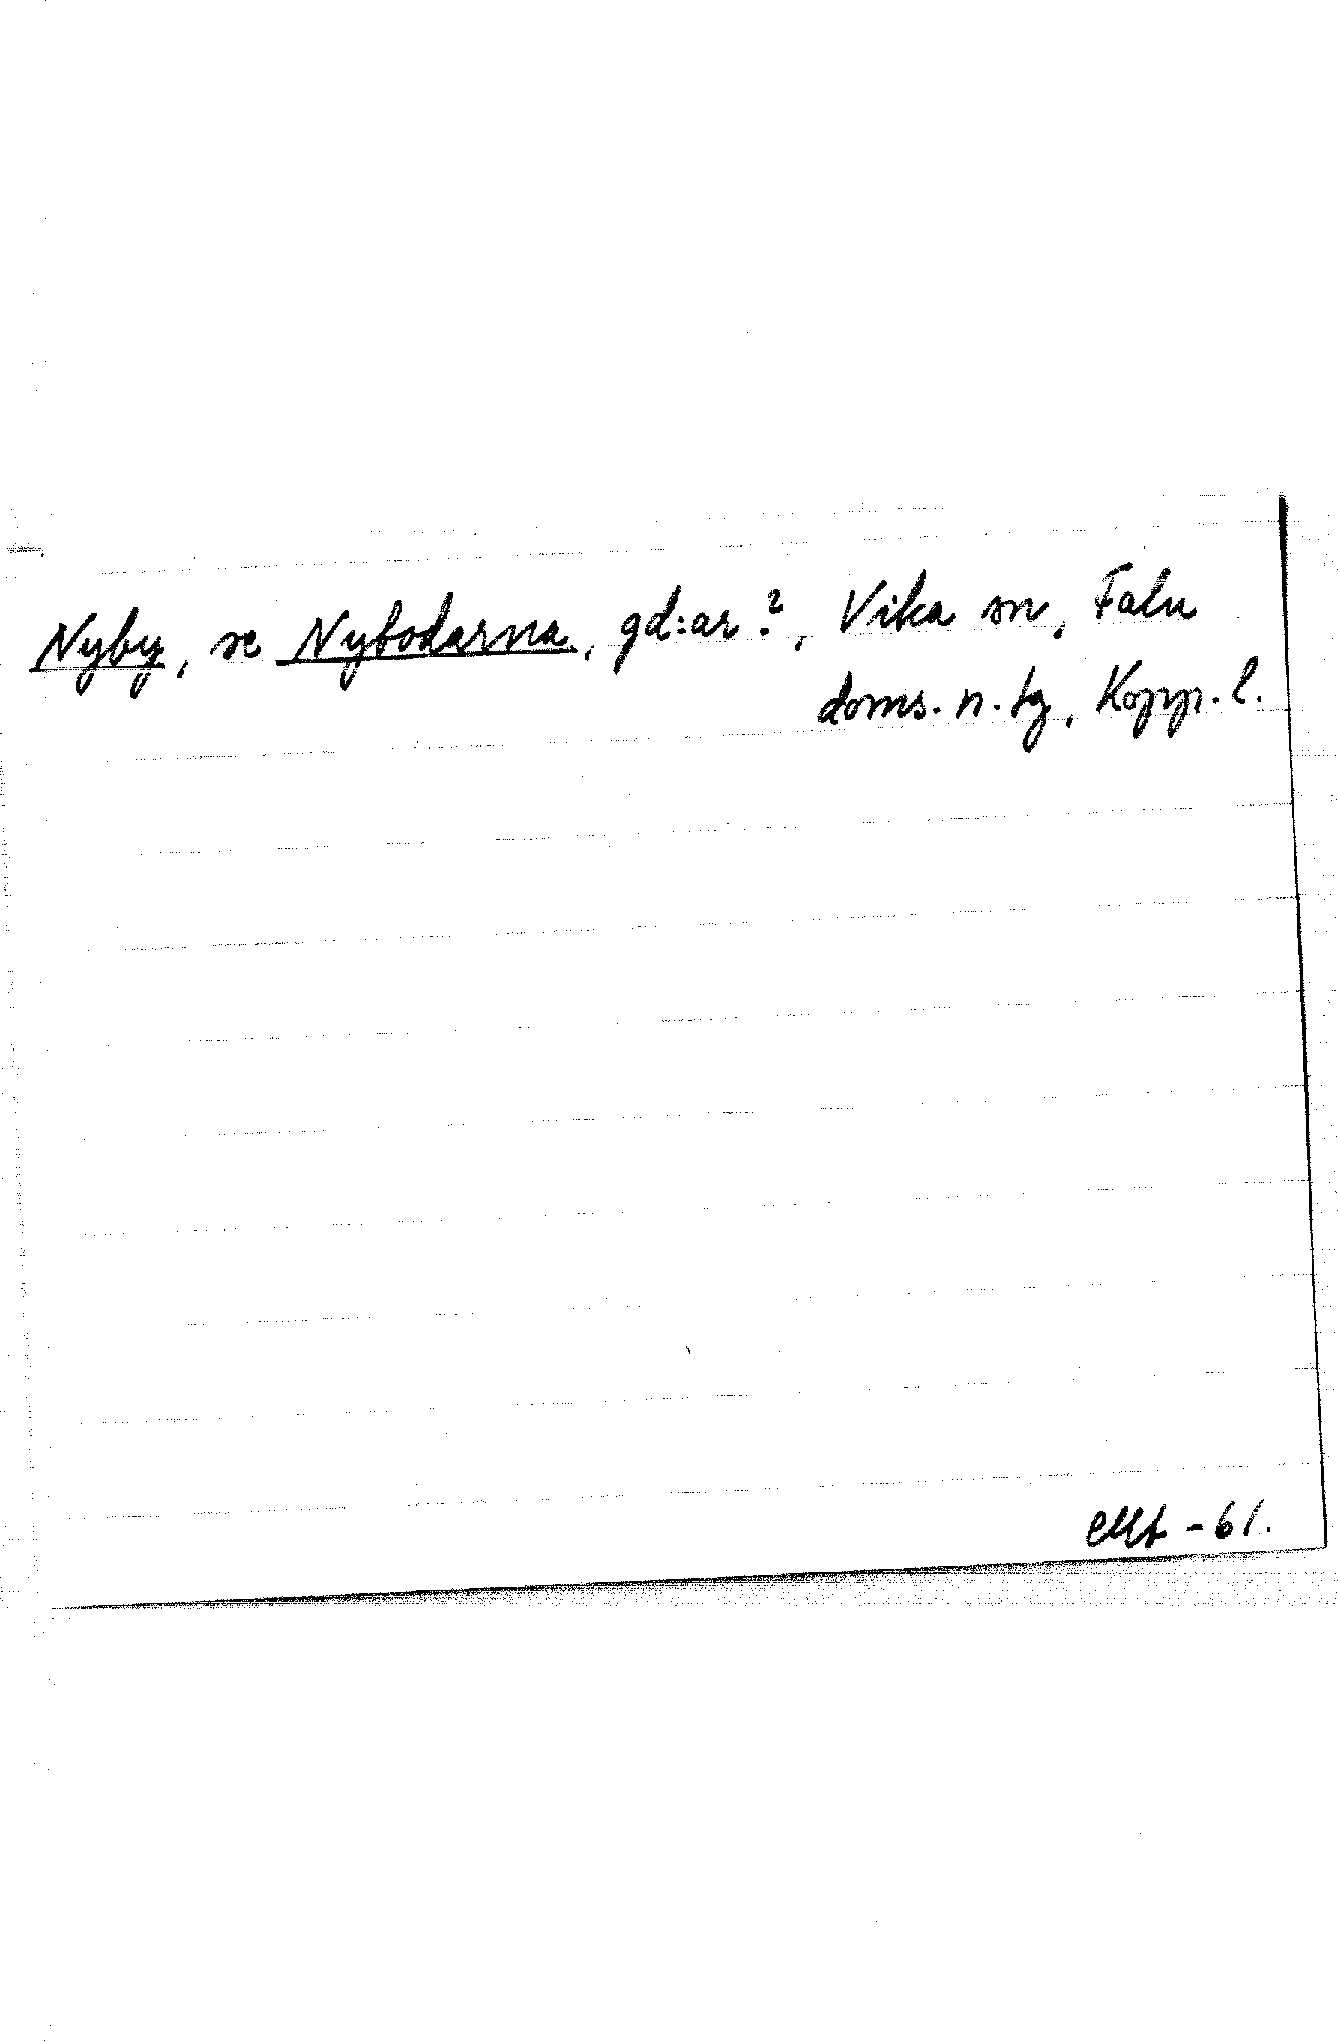 Nyby, se Nybodarna, gd:ar?, Vika sn, Falu
doms. n. tg, Kopp. l.
EMt -61.